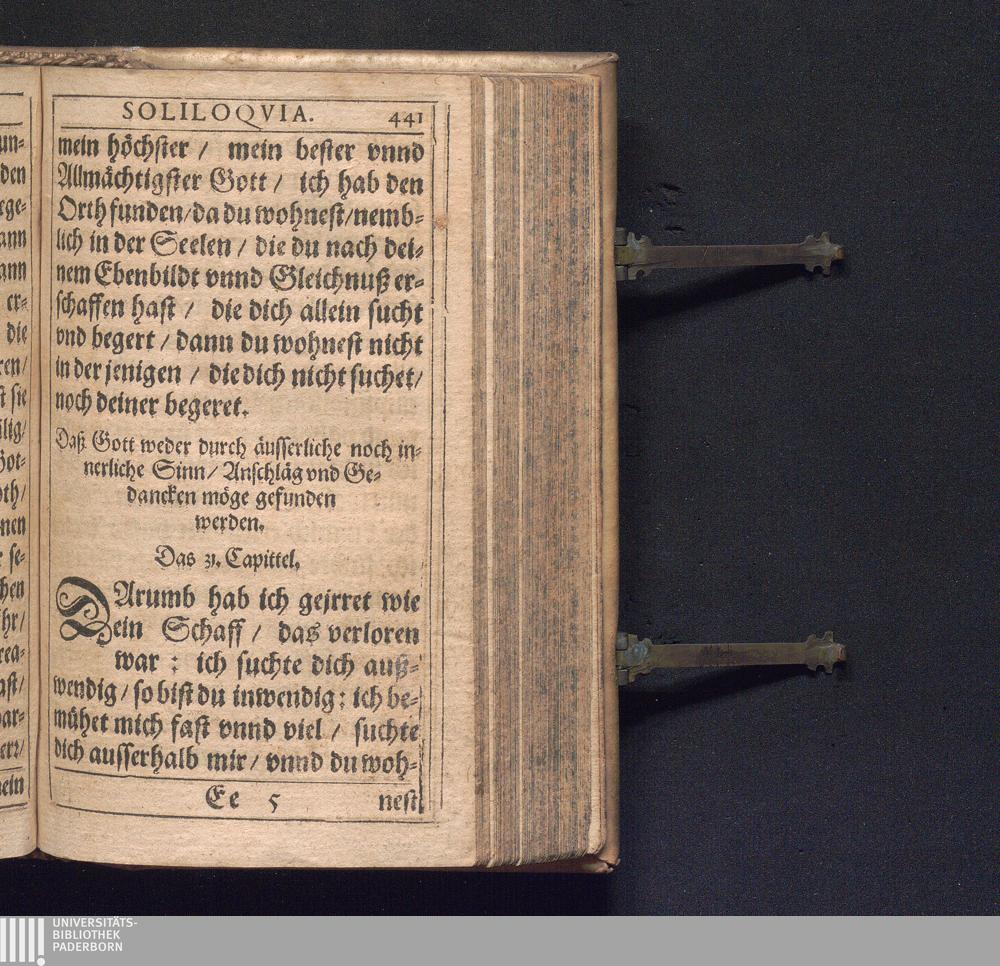 SOLILOQVIA. 441
mein höchster / mein bester vnnd
Allmächtigster Gott / ich hab den
Orth funden / da du wohnest / nemb-
lich in der Seelen / die du nach dei-
nem Ebenbildt vnnd Gleichnuß er-
schaffen hast / die dich allein sucht
vnd begert / dann du wohnest nicht
in der jenigen / die dich nicht suchet /
noch deiner begeret.
Daß Gott weder durch äusserliche noch in-
nerliche Sinn / Anschläg vnd Ge-
dancken möge gefunden
werden.
Das 31. Capittel.
DArumb hab ich geirret wie
ein Schaff / das verloren
war : ich suchte dich auß-
wendig / so bist du inwendig : ich be-
mühet mich fast vnnd viel / suchte
dich ausserhalb mir / vnnd du woh-
Ee 5 nest
un-
den
ege-
ann
ann
er-
die
ren /
st sie
ilig /
Got-
oth /
nen
r se-
chen
ihr /
rea-
ast /
par-
err /
mein
UNIVERSITÄTS-
BIBLIOTHEK
PADERBORN